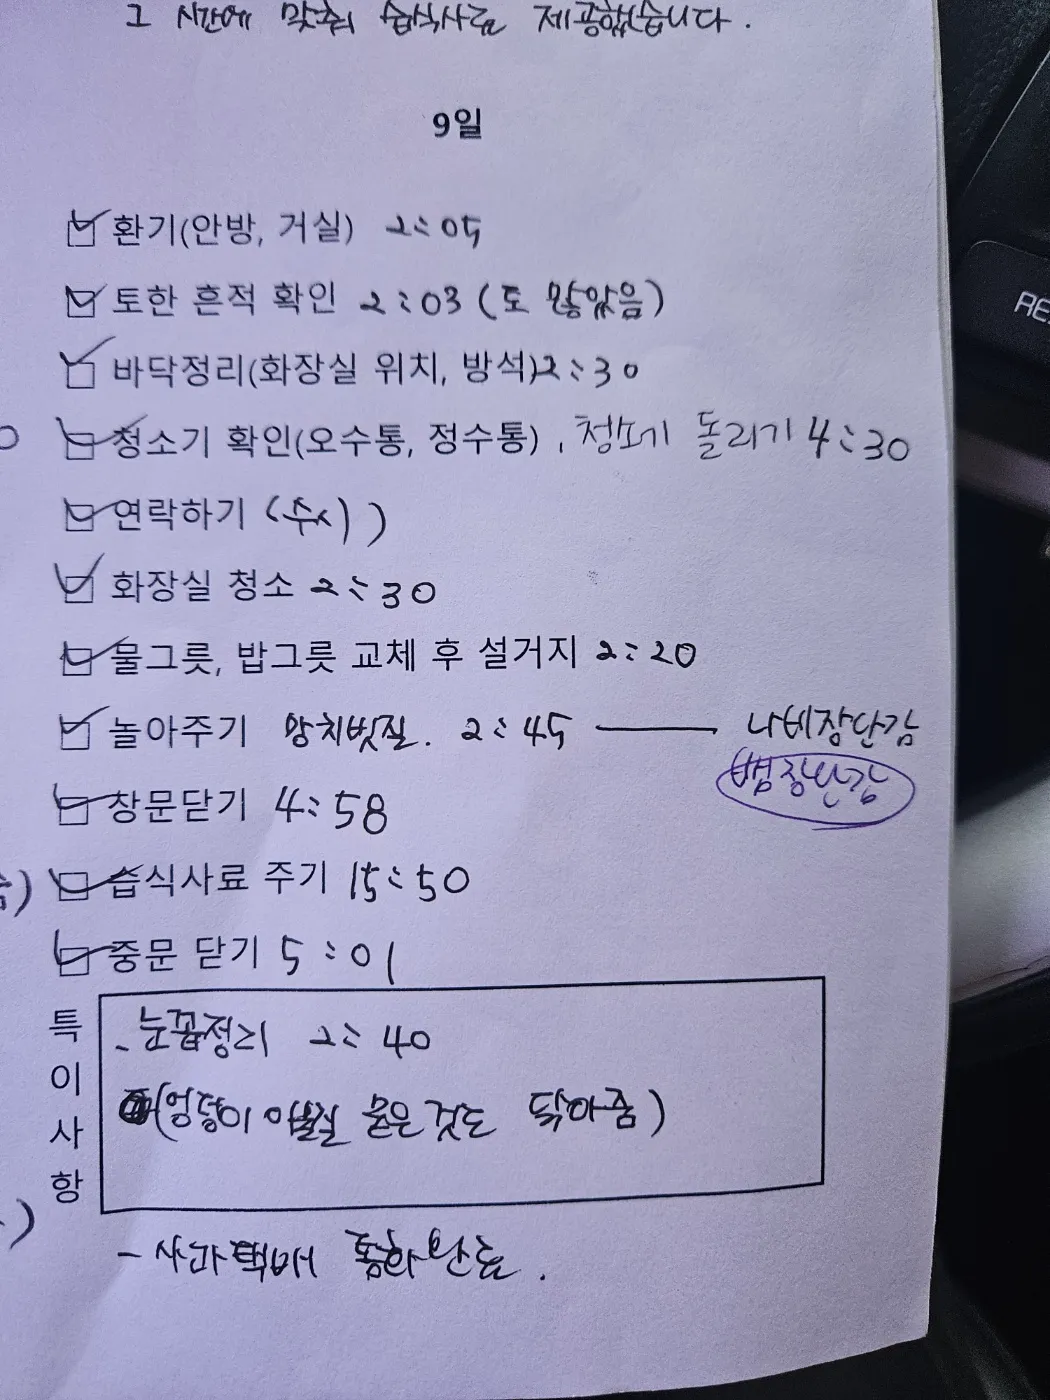 그 시간에 맞춰 습식사료 제공했습니다.
9일
환기(안방, 거실) 2:05
토한 흔적 확인 2:03 (토 많았음)
바닥정리(화장실 위치, 방석) 2:30
청소기 확인(오수통, 정수통), 청소기 돌리기 4:30
연락하기 (수시)
화장실 청소 2:30
물그릇, 밥그릇 교체 후 설거지 2:20
놀아주기 양치빗질. 2:45 — 나비장난감
뱀장난감
창문닫기 4:58
습식사료 주기 15:50
중문 닫기 5:01
특이사항
- 눈꼽정리 2:40
(엉덩이 이물질 묻은것도 닦아줌)
- 사과택배 통화완료.
RE